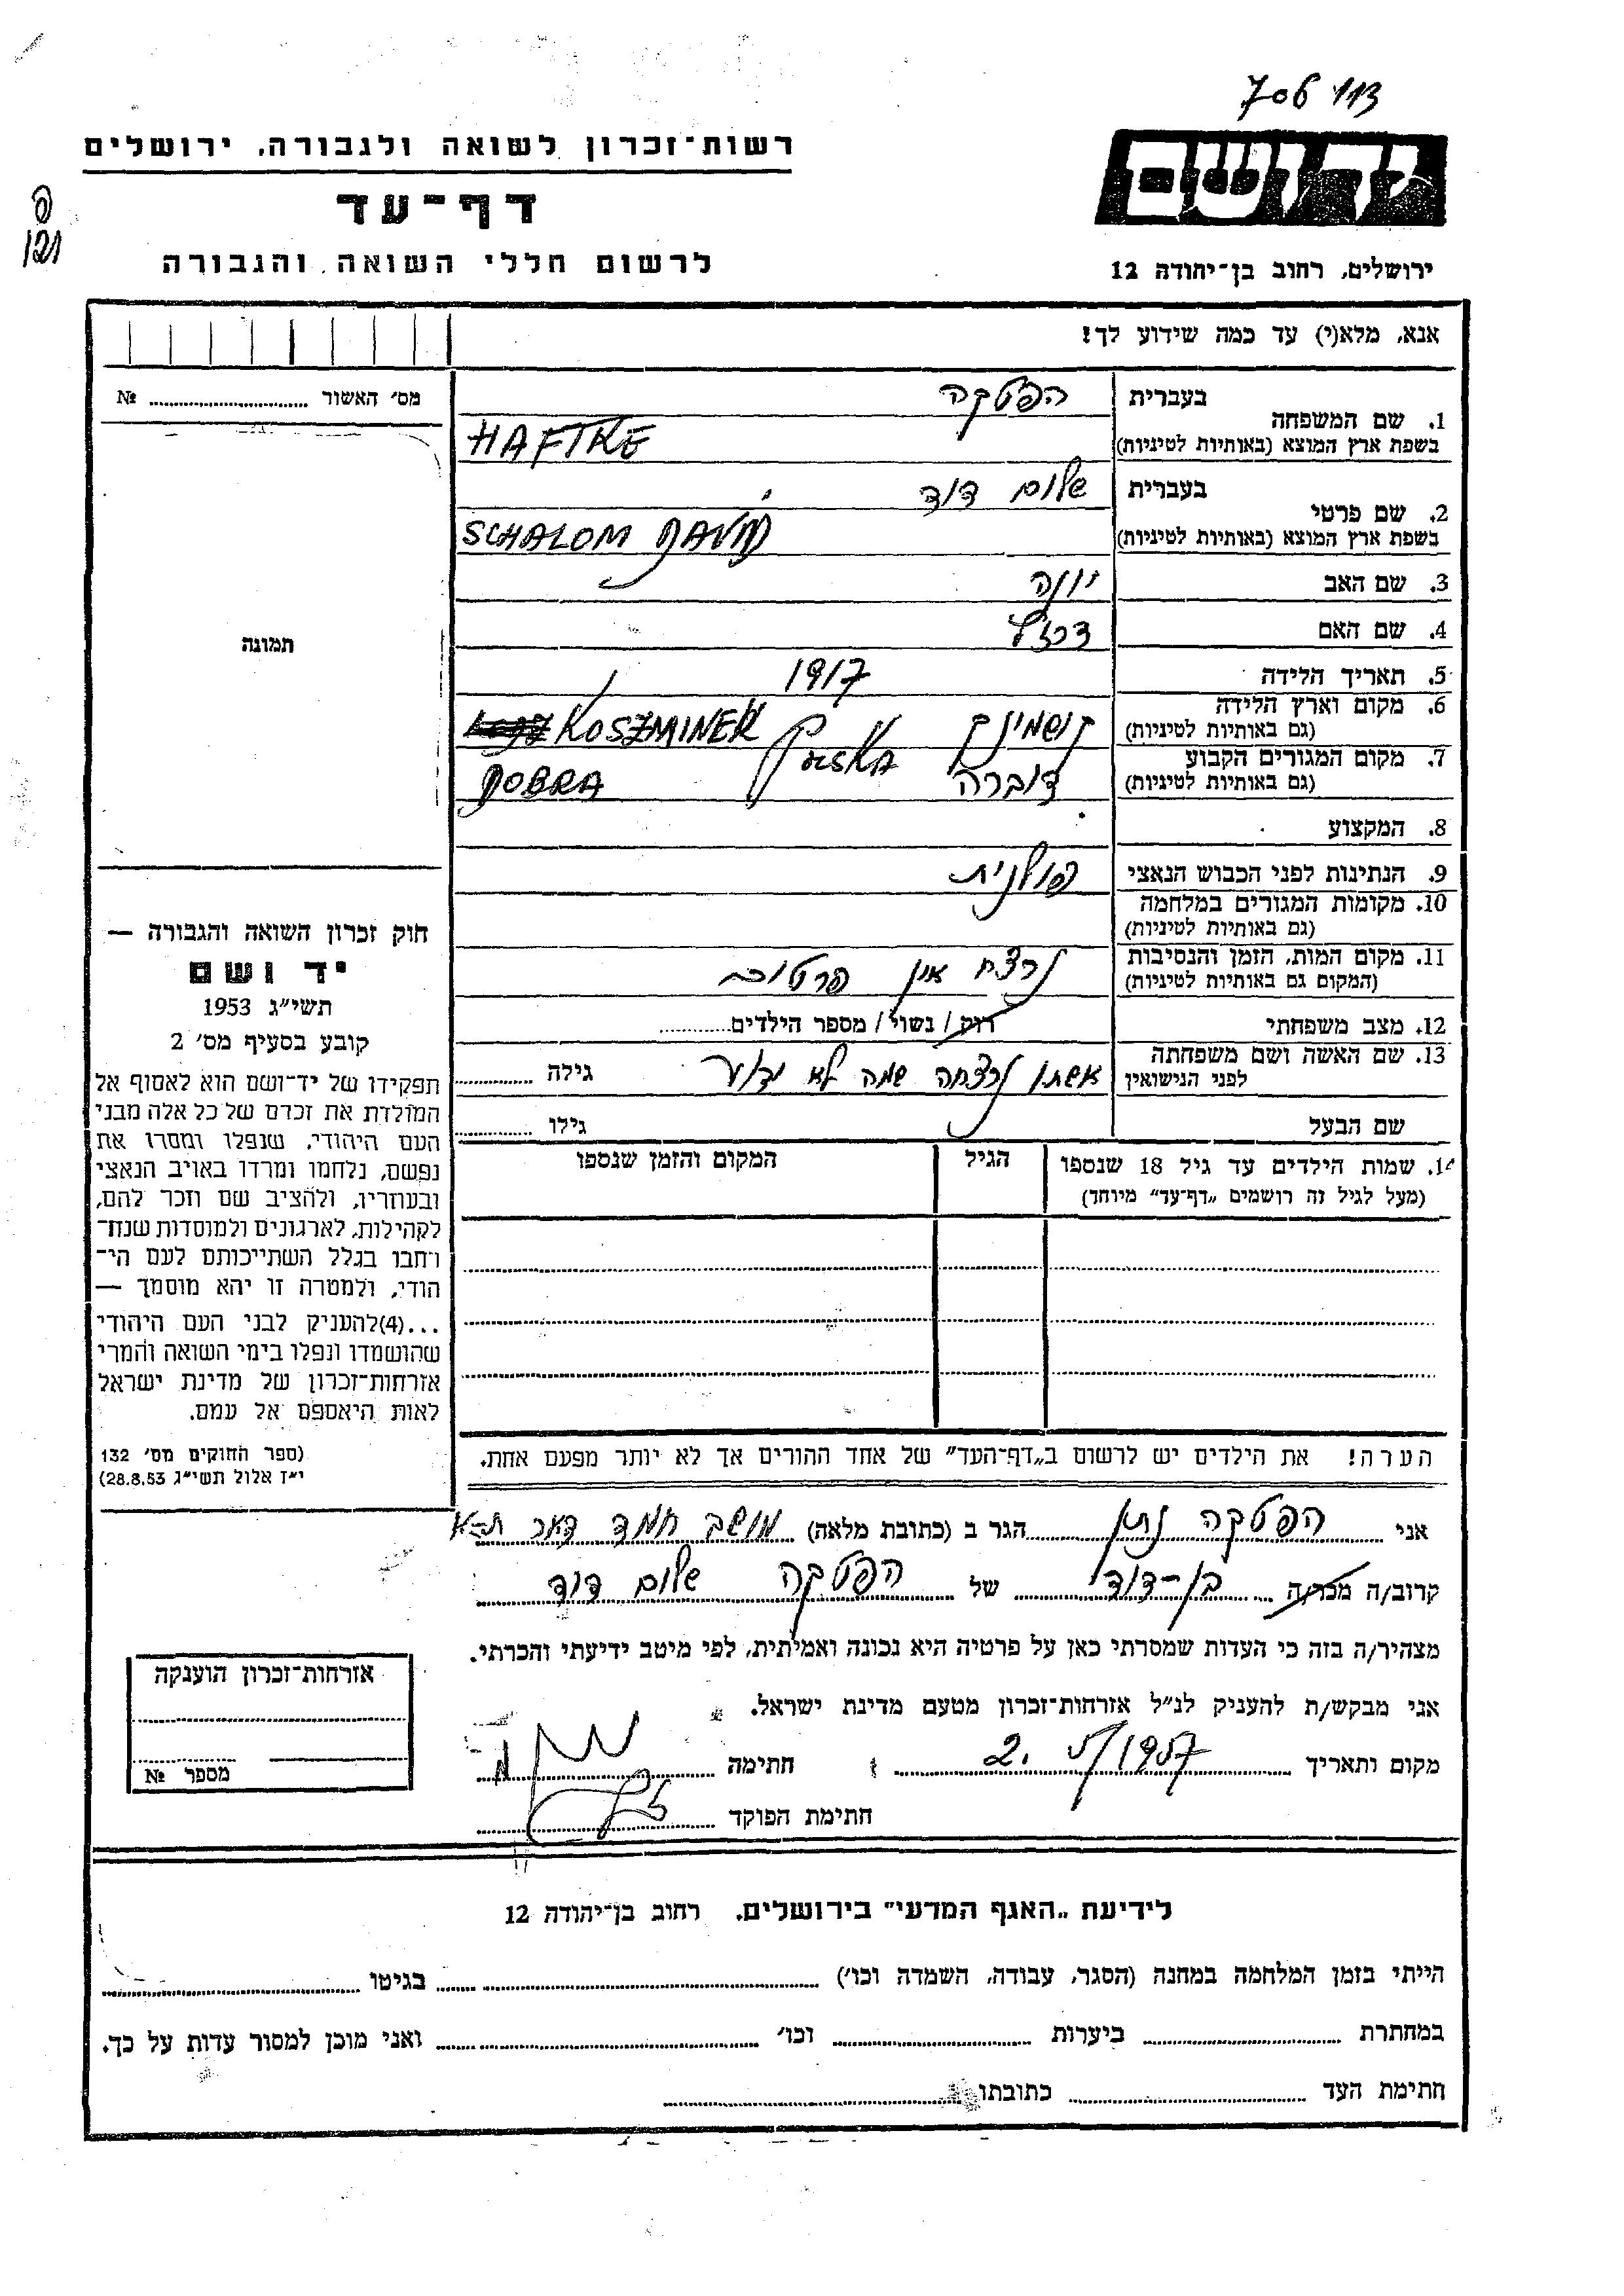 706 113
רשות־זכרון לשואה ולגבורה, ירושלים
יד ושם
דף־עד
לרשום חללי השואה והגבורה
ירושלים, רחוב בן־יהודה 12
אנא, מלא(י) עד כמה שידוע לך!
מס׳ האשור № 
1. שם המשפחה
בעברית הפטקה
בשפת ארץ המוצא (באותיות לטיניות) HAFTKE
2. שם פרטי
בעברית שלום דוד
בשפת ארץ המוצא (באותיות לטיניות) SCHALOM DAVID
3. שם האב יונה
4. שם האם
5. תאריך הלידה 1917
6. מקום וארץ הלידה
(גם באותיות לטיניות) KOSZMINEK POLSKA
7. מקום המגורים הקבוע
(גם באותיות לטיניות) דוברה DOBRA
8. המקצוע
9. הנתינות לפני הכבוש הנאצי פולנית
10. מקומות המגורים במלחמה
(גם באותיות לטיניות)
11. מקום המות, הזמן והנסיבות
(המקום גם באותיות לטיניות) נרצח אין פרטים
12. מצב משפחתי רווק / נשוי / מספר הילדים
13. שם האשה ושם משפחתה
לפני הנישואין אשתו נרצחה שמה לא ידוע גילה
שם הבעל גילו
14. שמות הילדים עד גיל 18 שנספו
(מעל לגיל זה רושמים „דף־עד” מיוחד)
הגיל
המקום והזמן שנספו
הערה! את הילדים יש לרשום ב„דף־העד” של אחד ההורים אך לא יותר מפעם אחת.
תמונה
חוק זכרון השואה והגבורה —
יד ושם
תשי״ג 1953
קובע בסעיף מס׳ 2
תפקידו של יד־ושם הוא לאסוף אל
המולדת את זכרם של כל אלה מבני
העם היהודי, שנפלו ומסרו את
נפשם, נלחמו ומרדו באויב הנאצי
ובעוזריו, ולהציב שם וזכר להם,
לקהילות, לארגונים ולמוסדות שנח־
רחבו בגלל השתייכותם לעם הי־
הודי, ולמטרה זו יהא מוסמך —
...(4)להעניק לבני העם היהודי
שהושמדו ונפלו בימי השואה והמרי
אזרחות־זכרון של מדינת ישראל
לאות היאספם אל עמם.
(ספר החוקים מס׳ 132
י״ז אלול תשי״ג 28.8.53)
אני הפטקה נתן הגר ב (כתובת מלאה) מושב חמד דאר ת־א
קרוב/ה מכר/ה בן-דודי של הפטקה שלום דוד
מצהיר/ה בזה כי העדות שמסרתי כאן על פרטיה היא נכונה ואמיתית, לפי מיטב ידיעתי והכרתי.
אני מבקש/ת להעניק לנ״ל אזרחות־זכרון מטעם מדינת ישראל.
מקום ותאריך 2. V/1957 חתימה
חתימת הפוקד
אזרחות־זכרון הוענקה
מספר №
לידיעת „האגף המדעי” בירושלים, רחוב בן־יהודה 12
הייתי בזמן המלחמה במחנה (הסגר, עבודה, השמדה וכו׳) בגיטו
במחתרת ביערות וכו׳ ואני מוכן למסור עדות על כך.
חתימת העד כתובתו